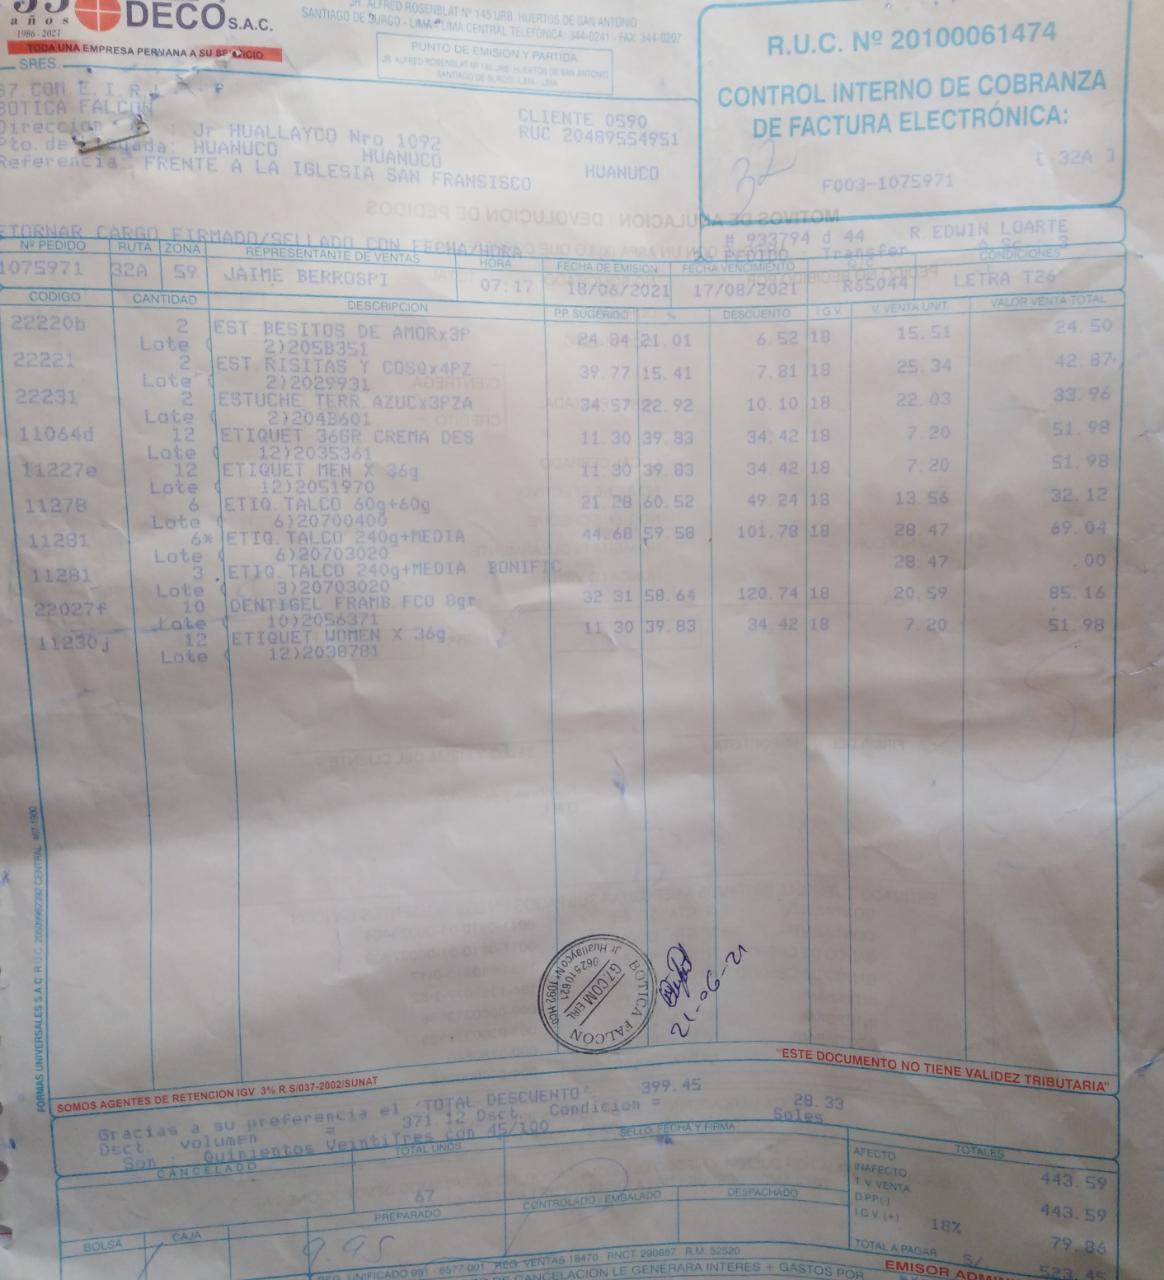 años
1986-2021
DECO S.A.C.
TODA UNA EMPRESA PERUANA A SU SERVICIO
JR. ALFRED ROSENBLAT Nº 145 URB. HUERTOS DE SAN ANTONIO
SANTIAGO DE SURCO - LIMA - LIMA CENTRAL TELEFÓNICA: 344-0241 - FAX: 344-0207
PUNTO DE EMISIÓN Y PARTIDA:
JR. ALFRED ROSENBLAT Nº 145 URB. HUERTOS DE SAN ANTONIO
SANTIAGO DE SURCO - LIMA - LIMA
R.U.C. Nº 20100061474
CONTROL INTERNO DE COBRANZA
DE FACTURA ELECTRÓNICA:
32
[ 32A ]
F003-1075971
SRES.
G7.COM E.I.R.L
BOTICA FALCON
CLIENTE 0590
Direccion : Jr HUALLAYCO Nro 1092
RUC 20489554951
Pto. de : HUANUCO HUANUCO HUANUCO
Referencia: FRENTE A LA IGLESIA SAN FRANSISCO
RETORNAR CARGO FIRMADO/SELLADO CON FECHA/HORA
# 933794 d 44 R.EDWIN LOARTE
PEDIDO : Transfer
Nº PEDIDO RUTA ZONA REPRESENTANTE DE VENTAS HORA FECHA DE EMISIÓN FECHA VENCIMIENTO CONDICIONES
1075971 32A 59 JAIME BERROSPI 07:17 18/06/2021 17/08/2021 R65044 LETRA T26
CÓDIGO CANTIDAD DESCRIPCIÓN PP. SUGERIDO % DESCUENTO I.G.V. V. VENTA UNIT. VALOR VENTA TOTAL
22220b 2 EST.BESITOS DE AMORx3P 24.84 21.01 6.52 18 15.51 24.50
Lote ( 2)205B351
22221 2 EST.RISITAS Y COSQx4PZ 39.77 15.41 7.81 18 25.34 42.87
Lote ( 2)2029931
22231 2 ESTUCHE TERR.AZUCx3PZA 34.57 22.92 10.10 18 22.03 33.96
Lote ( 2)204B601
11064d 12 ETIQUET 36GR CREMA DES 11.30 39.83 34.42 18 7.20 51.98
Lote ( 12)2035361
11227e 12 ETIQUET MEN X 36g 11.30 39.83 34.42 18 7.20 51.98
Lote ( 12)2051970
11278 6 ETIQ.TALCO 60g+60g 21.28 60.52 49.24 18 13.56 32.12
Lote ( 6)20700400
11281 6* ETIQ.TALCO 240g+MEDIA 44.68 59.58 101.78 18 28.47 69.04
Lote ( 6)20703020
11281 3 ETIQ.TALCO 240g+MEDIA BONIFIC 28.47 .00
Lote ( 3)20703020
22027f 10 DENTIGEL FRAMB.FCO 8gr 32.31 58.64 120.74 18 20.59 85.16
Lote ( 10)2056371
11230j 12 ETIQUET WOMEN X 36g 11.30 39.83 34.42 18 7.20 51.98
Lote ( 12)2038781
BOTICA FALCON
G7.COM EIRL
062510621
Jr Huallayco Nº 1092 HCO
21-06-21
FORMAS UNIVERSALES S.A.C.
SOMOS AGENTES DE RETENCION IGV 3% R.S/037-2002/SUNAT
"ESTE DOCUMENTO NO TIENE VALIDEZ TRIBUTARIA"
Gracias a su preferencia el 'TOTAL DESCUENTO': 399.45
Dsct. Volumen = 371.12 Dsct. Condicion = 28.33
Son : Quinientos VeintiTres con 45/100 Soles
CANCELADO TOTAL UNDS. SELLO, FECHA Y FIRMA TOTALES
67
AFECTO 443.59
INAFECTO
T.V. VENTA 443.59
D.PP(-)
I.G.V.(+) 18% 79.86
TOTAL A PAGAR S/ 523.45
BOLSA CAJA PREPARADO CONTROLADO / EMBALADO DESPACHADO
9.95
EMISOR